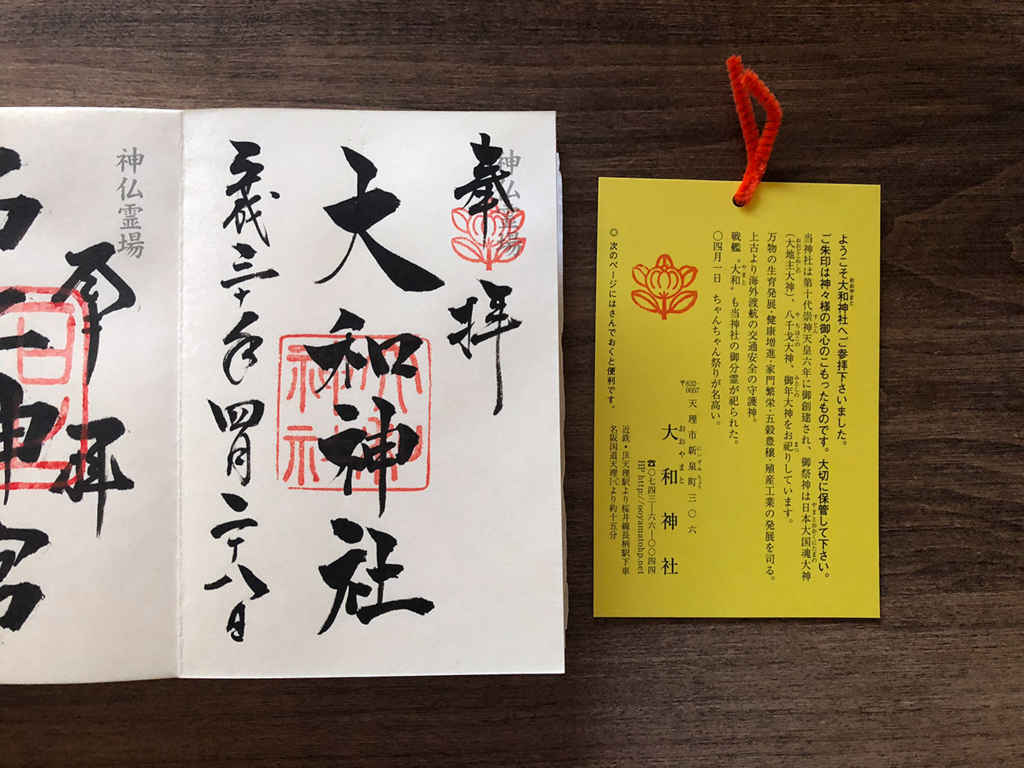 神仏霊場
奉拝
大和神社
大和神社
平成三十年四月二十八日
神仏霊場
奉拝
ようこそ大和神社へご参拝下さいました。
おおやまと
ご朱印は神々様の御心のこもったものです。大切に保管して下さい。
当神社は第十代崇神天皇六年に御創建され、御祭神は日本大国魂大神
(大地主大神)、八千戈大神、御年大神をお祀りしています。
万物の生育発展・健康増進・家門繁栄・五穀豊穣・殖産工業の発展を司る。
上古より海外渡航の交通安全の守護神。
戦艦“大和”も当神社の御分霊が祀られた。
やまと
〇四月一日 ちゃんちゃん祭りが名高い。
〒632-0057 天理市新泉町三〇六
にいずみちょう
大和神社
おおやまと
☎〇七四三―六六―〇〇四四
HP http://ooyamatohp.net
近鉄・JR天理駅より桜井線長柄駅下車
名阪国道天理I・Cより約十五分
◎ 次のページにはさんでおくと便利です。